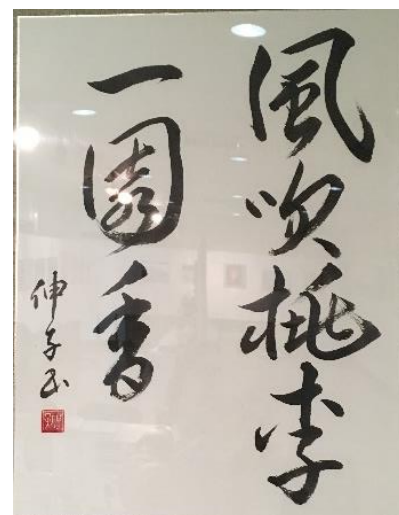 風吹桃李
一園香
伸子書